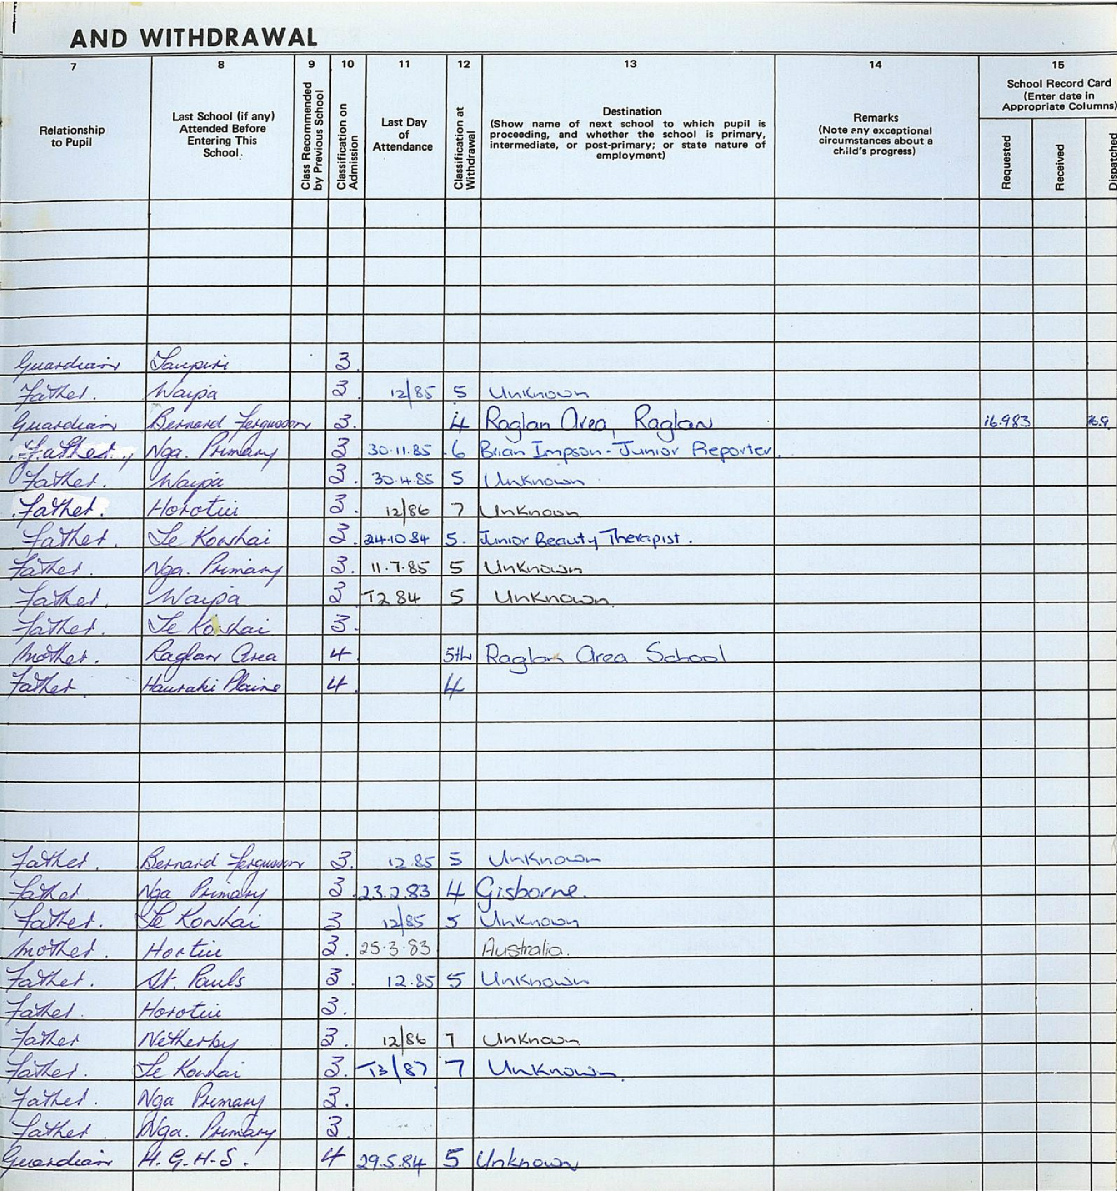 AND WITHDRAWAL
7 8 9 10 11 12 13 14 15
Relationship to Pupil
Last School (if any) Attended Before Entering This School.
Class Recommended by Previous School
Classification on Admission
Last Day of Attendance
Classification at Withdrawal
Destination
(Show name of next school to which pupil is proceeding, and whether the school is primary, intermediate, or post-primary; or state nature of employment)
Remarks
(Note any exceptional circumstances about a child's progress)
School Record Card
(Enter date in Appropriate Columns)
Requested
Received
Dispatched
Guardian Taupiri 3.
Father. Waipa 3 12/85 5 Unknown
Guardian Bernard Fergusson 3. 4 Raglan Area, Raglan 16.9.83
Father. Nga. Primary 3 30.11.85 6 Brian Impson - Junior Reporter.
Father. Waipa 3. 30.4.85 5 Unknown
Father. Horotiu 3. 12/86 7 Unknown
Father. Te Kowhai 3. 24.10.84 5. Junior Beauty Therapist.
Father. Nga. Primary 3. 11.7.85 5 Unknown
Father. Waipa 3 T2 84 5 Unknown
Father. Te Kowhai 3.
Mother. Raglan Area 4 5th Raglan Area School
Father. Hauraki Plains 4. 4
Father. Bernard Fergusson 3. 12.85 5 Unknown
Father Nga Primary 3. 23.2.83 4 Gisborne.
Father. Te Kowhai 3 12/85 5 Unknown
Mother. Hortiu 3. 25.3.83 Australia.
Father. St. Pauls 3. 12.85 5 Unknown
Father. Horotiu 3.
Father Netherby 3. 12/86 7 Unknown
Father. Te Kowhai 3. T3/87 7 Unknown
Father. Nga Primary 3.
Father Nga. Primary 3
Guardian H.G.H.S. 4 29.5.84 5 Unknown